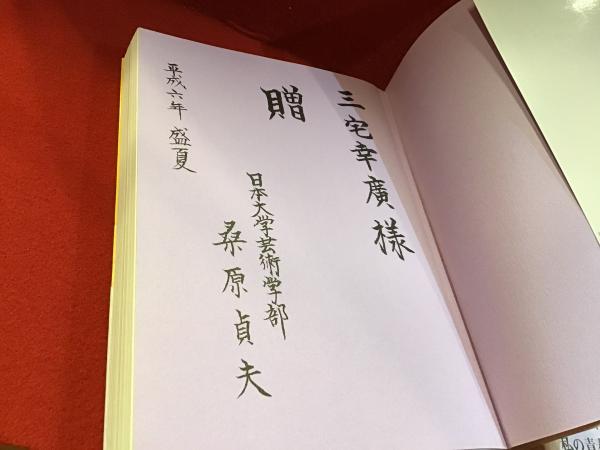 三宅幸廣様
贈
日本大学芸術学部
桑原貞夫
平成六年 盛夏
私の青